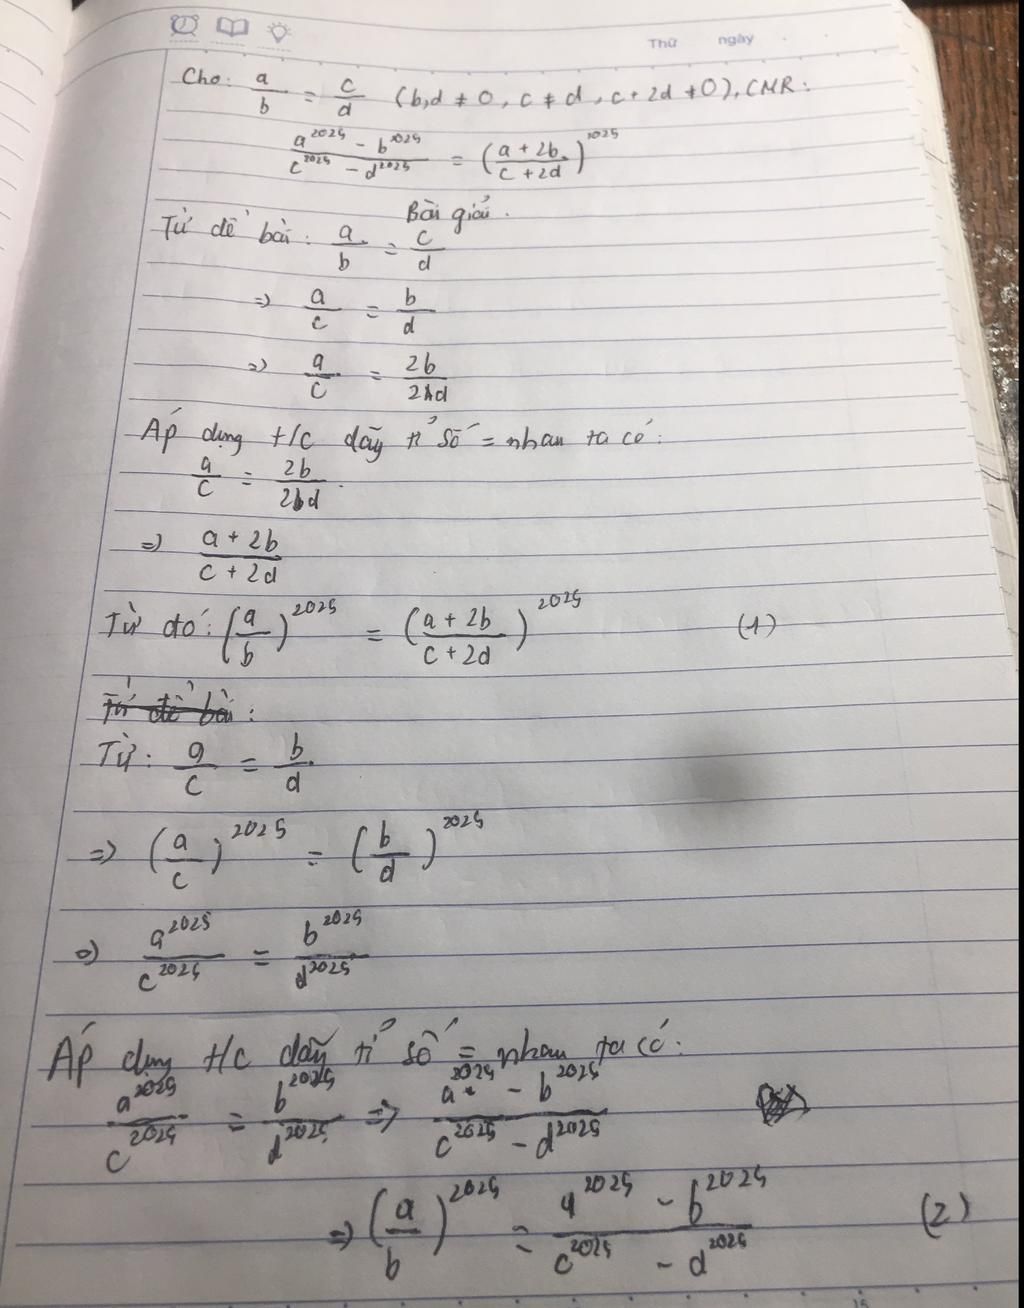 Thứ ngày
Cho: a/b = c/d (b,d ≠ 0, c ≠ d, c + 2d ≠ 0), CMR:
(a^2025 - b^2025)/(c^2025 - d^2025) = ((a + 2b)/(c + 2d))^2025
Bài giải.
Từ đề bài: a/b = c/d
=> a/c = b/d
=> a/c = 2b/2d
Áp dụng t/c dãy tỉ số = nhau ta có:
a/c = 2b/2d
=> (a + 2b)/(c + 2d)
Từ đó: (a/b)^2025 = ((a + 2b)/(c + 2d))^2025 (1)
Từ đề bài:
Từ: a/c = b/d
=> (a/c)^2025 = (b/d)^2025
=> a^2025/c^2025 = b^2025/d^2025
Áp dụng t/c dãy tỉ số = nhau ta có:
a^2025/c^2025 = b^2025/d^2025 => (a^2025 - b^2025)/(c^2025 - d^2025)
=> (a/b)^2025 = (a^2025 - b^2025)/(c^2025 - d^2025) (2)